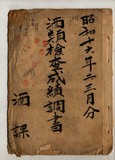 昭和十六年二三月分
酒類檢查成績調書
酒課